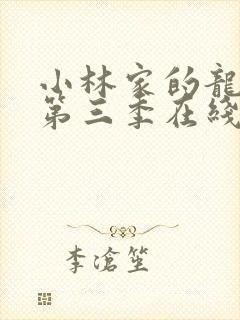 小林家的龍
第三季在綫
李滄笙